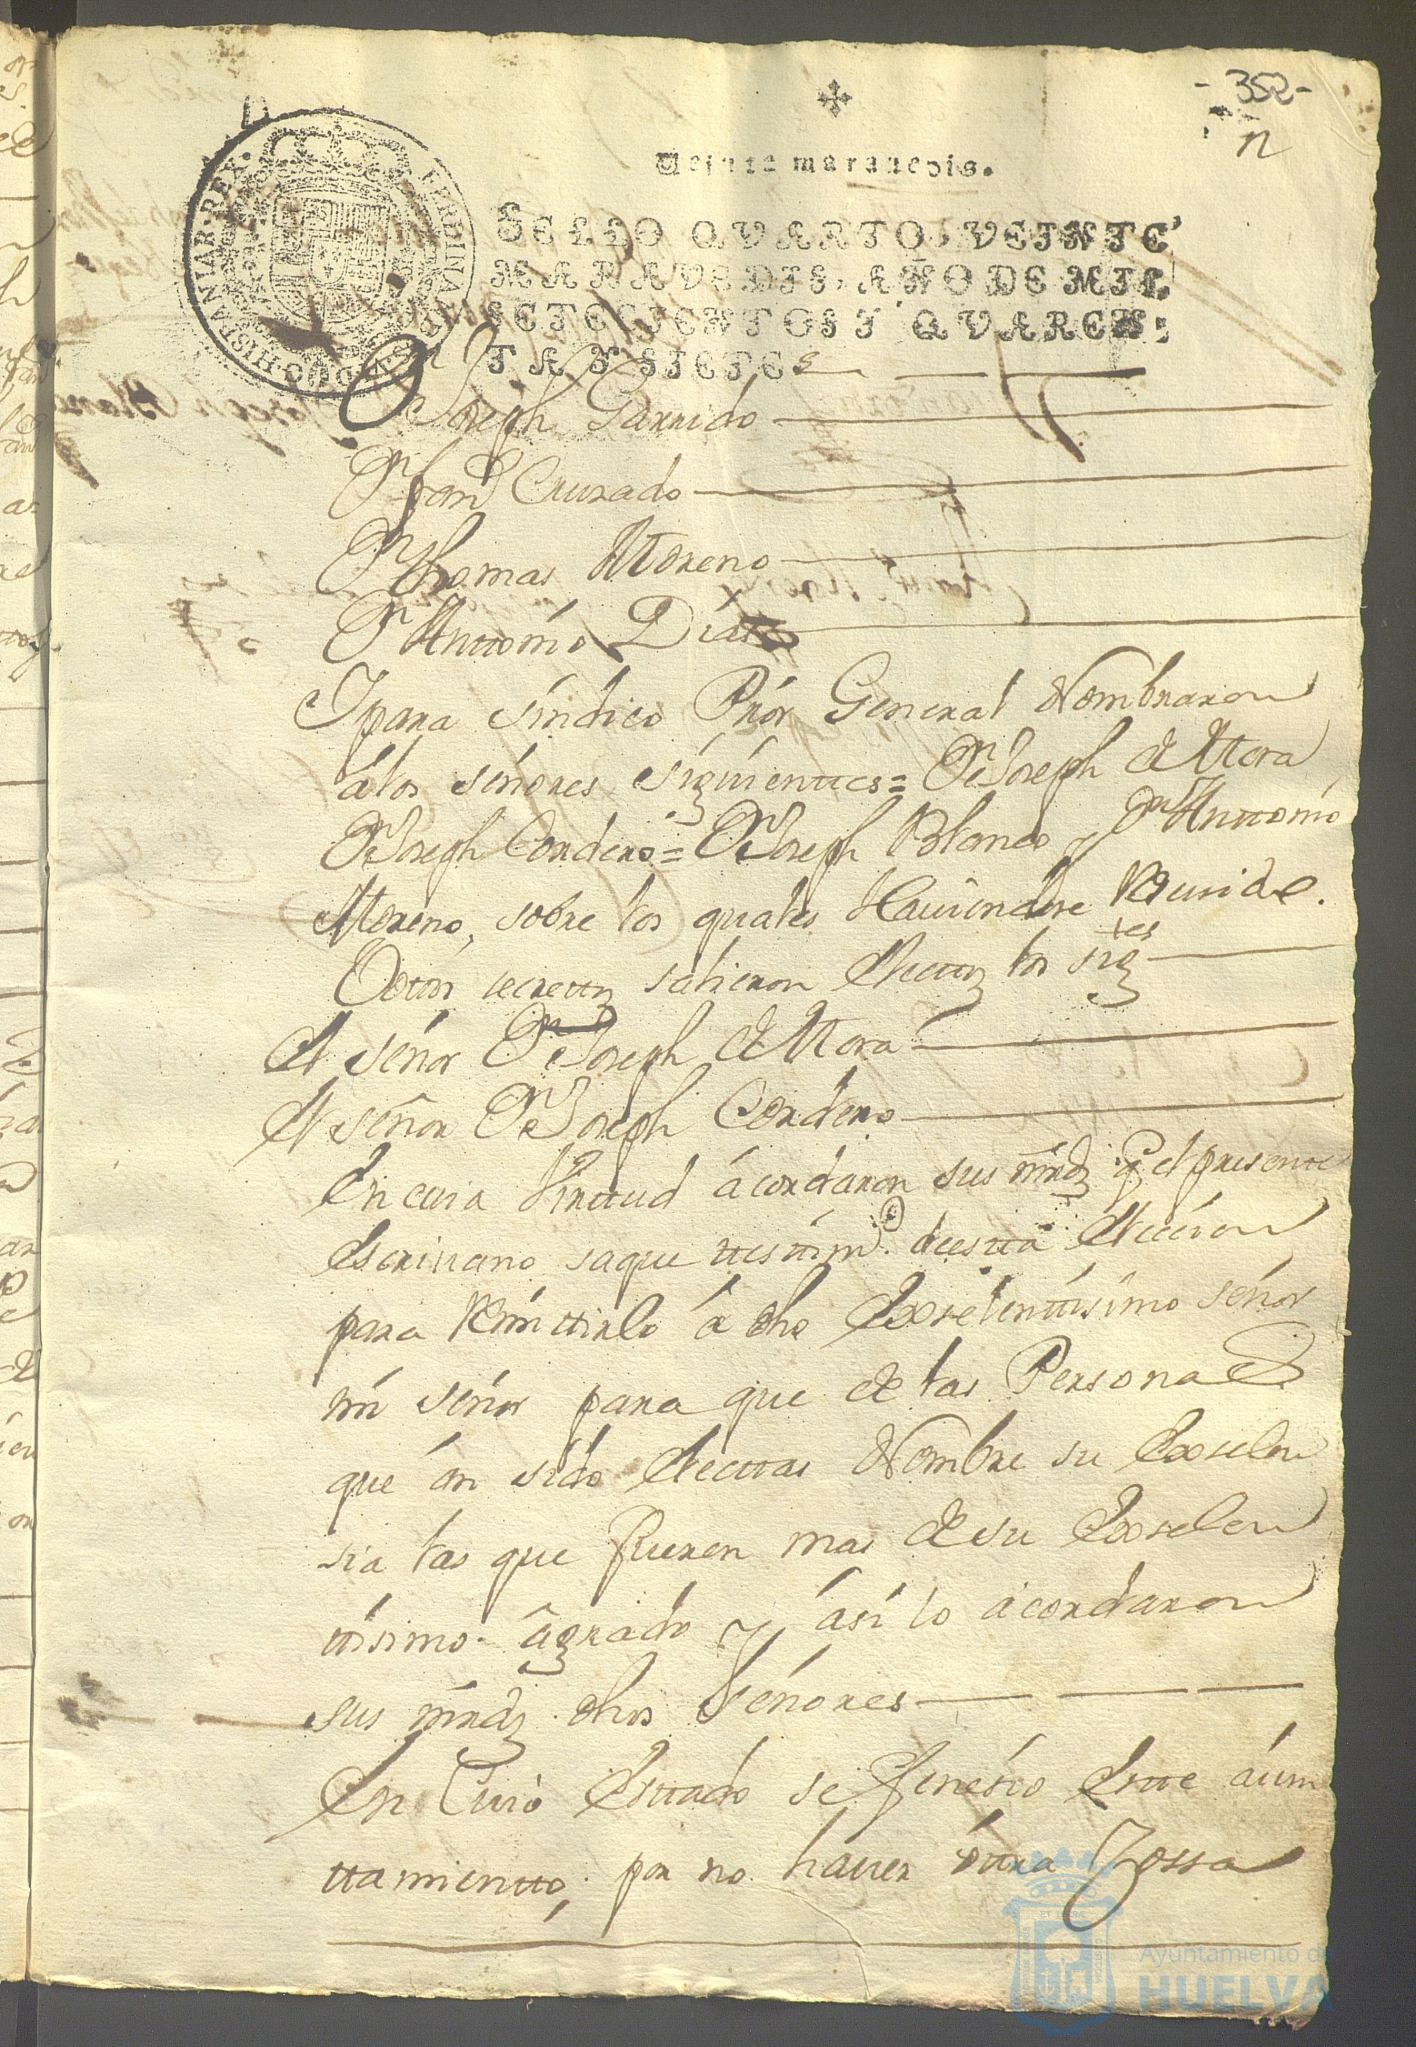 -352-
n
✠
Veinte marauedis.
SELLO QVARTO, VEINTE
MARAVEDIS, AÑO DE MIL
SETECIENTOS Y QVAREN-
TA Y SIETE
FERDINANDUS VI D G HISPANIAR REX
Dn Joseph Garrido
Dn Juan Cruzado
Dn Thomas Moreno
Dn Anttonio Dias
Y para síndico Prór General Nombraron
á los señores siguienttes = Dn Joseph de Mora
Dn Joseph Cordero = Dn Joseph Blanco y Dn Anttonio
Moreno, sobre los quales Hauiendose
Votos secrettos salieron Electtos los sigtes
El señor Dn Joseph de Mora
El señor Dn Joseph Cordero
En cuia Virttud ácordaron sus mrds q el presentte
Escriuano saque ttesttimo deestta Elección
para Remittirlo á dho Exselenttísimo señor
mi señor para que de las Personas
que án sido Electtas Nombre su Exselen
sia las que fueren mas de su Exselen
ttisimo ágrado y ási lo ácordaron
sus mrds dhos Señores
En Cuio Esttado se fenesio estte áiun
ttamientto, por no hauer óttra Cossa
Ayuntamiento de
HUELVA